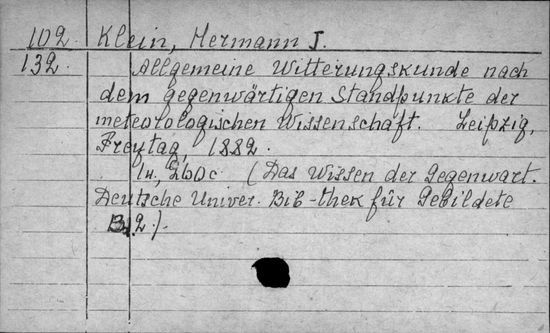 102. Klein, Hermann J.
132. Allgemeine Witterungskunde nach
dem gegenwärtigen Standpunkte der
meteorologischen Wissenschaft. Leipzig,
Freytag, 1882.
(Das Wissen der Gegenwart.
Deutsche Univer. Bib-thek für Gebildete
B. 2.).